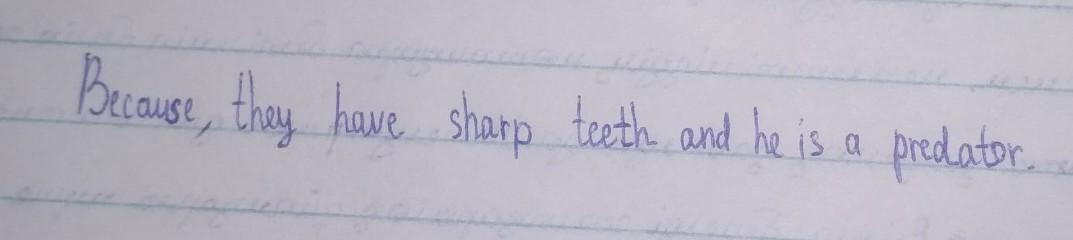 Because, they have sharp teeth and he is a predator.